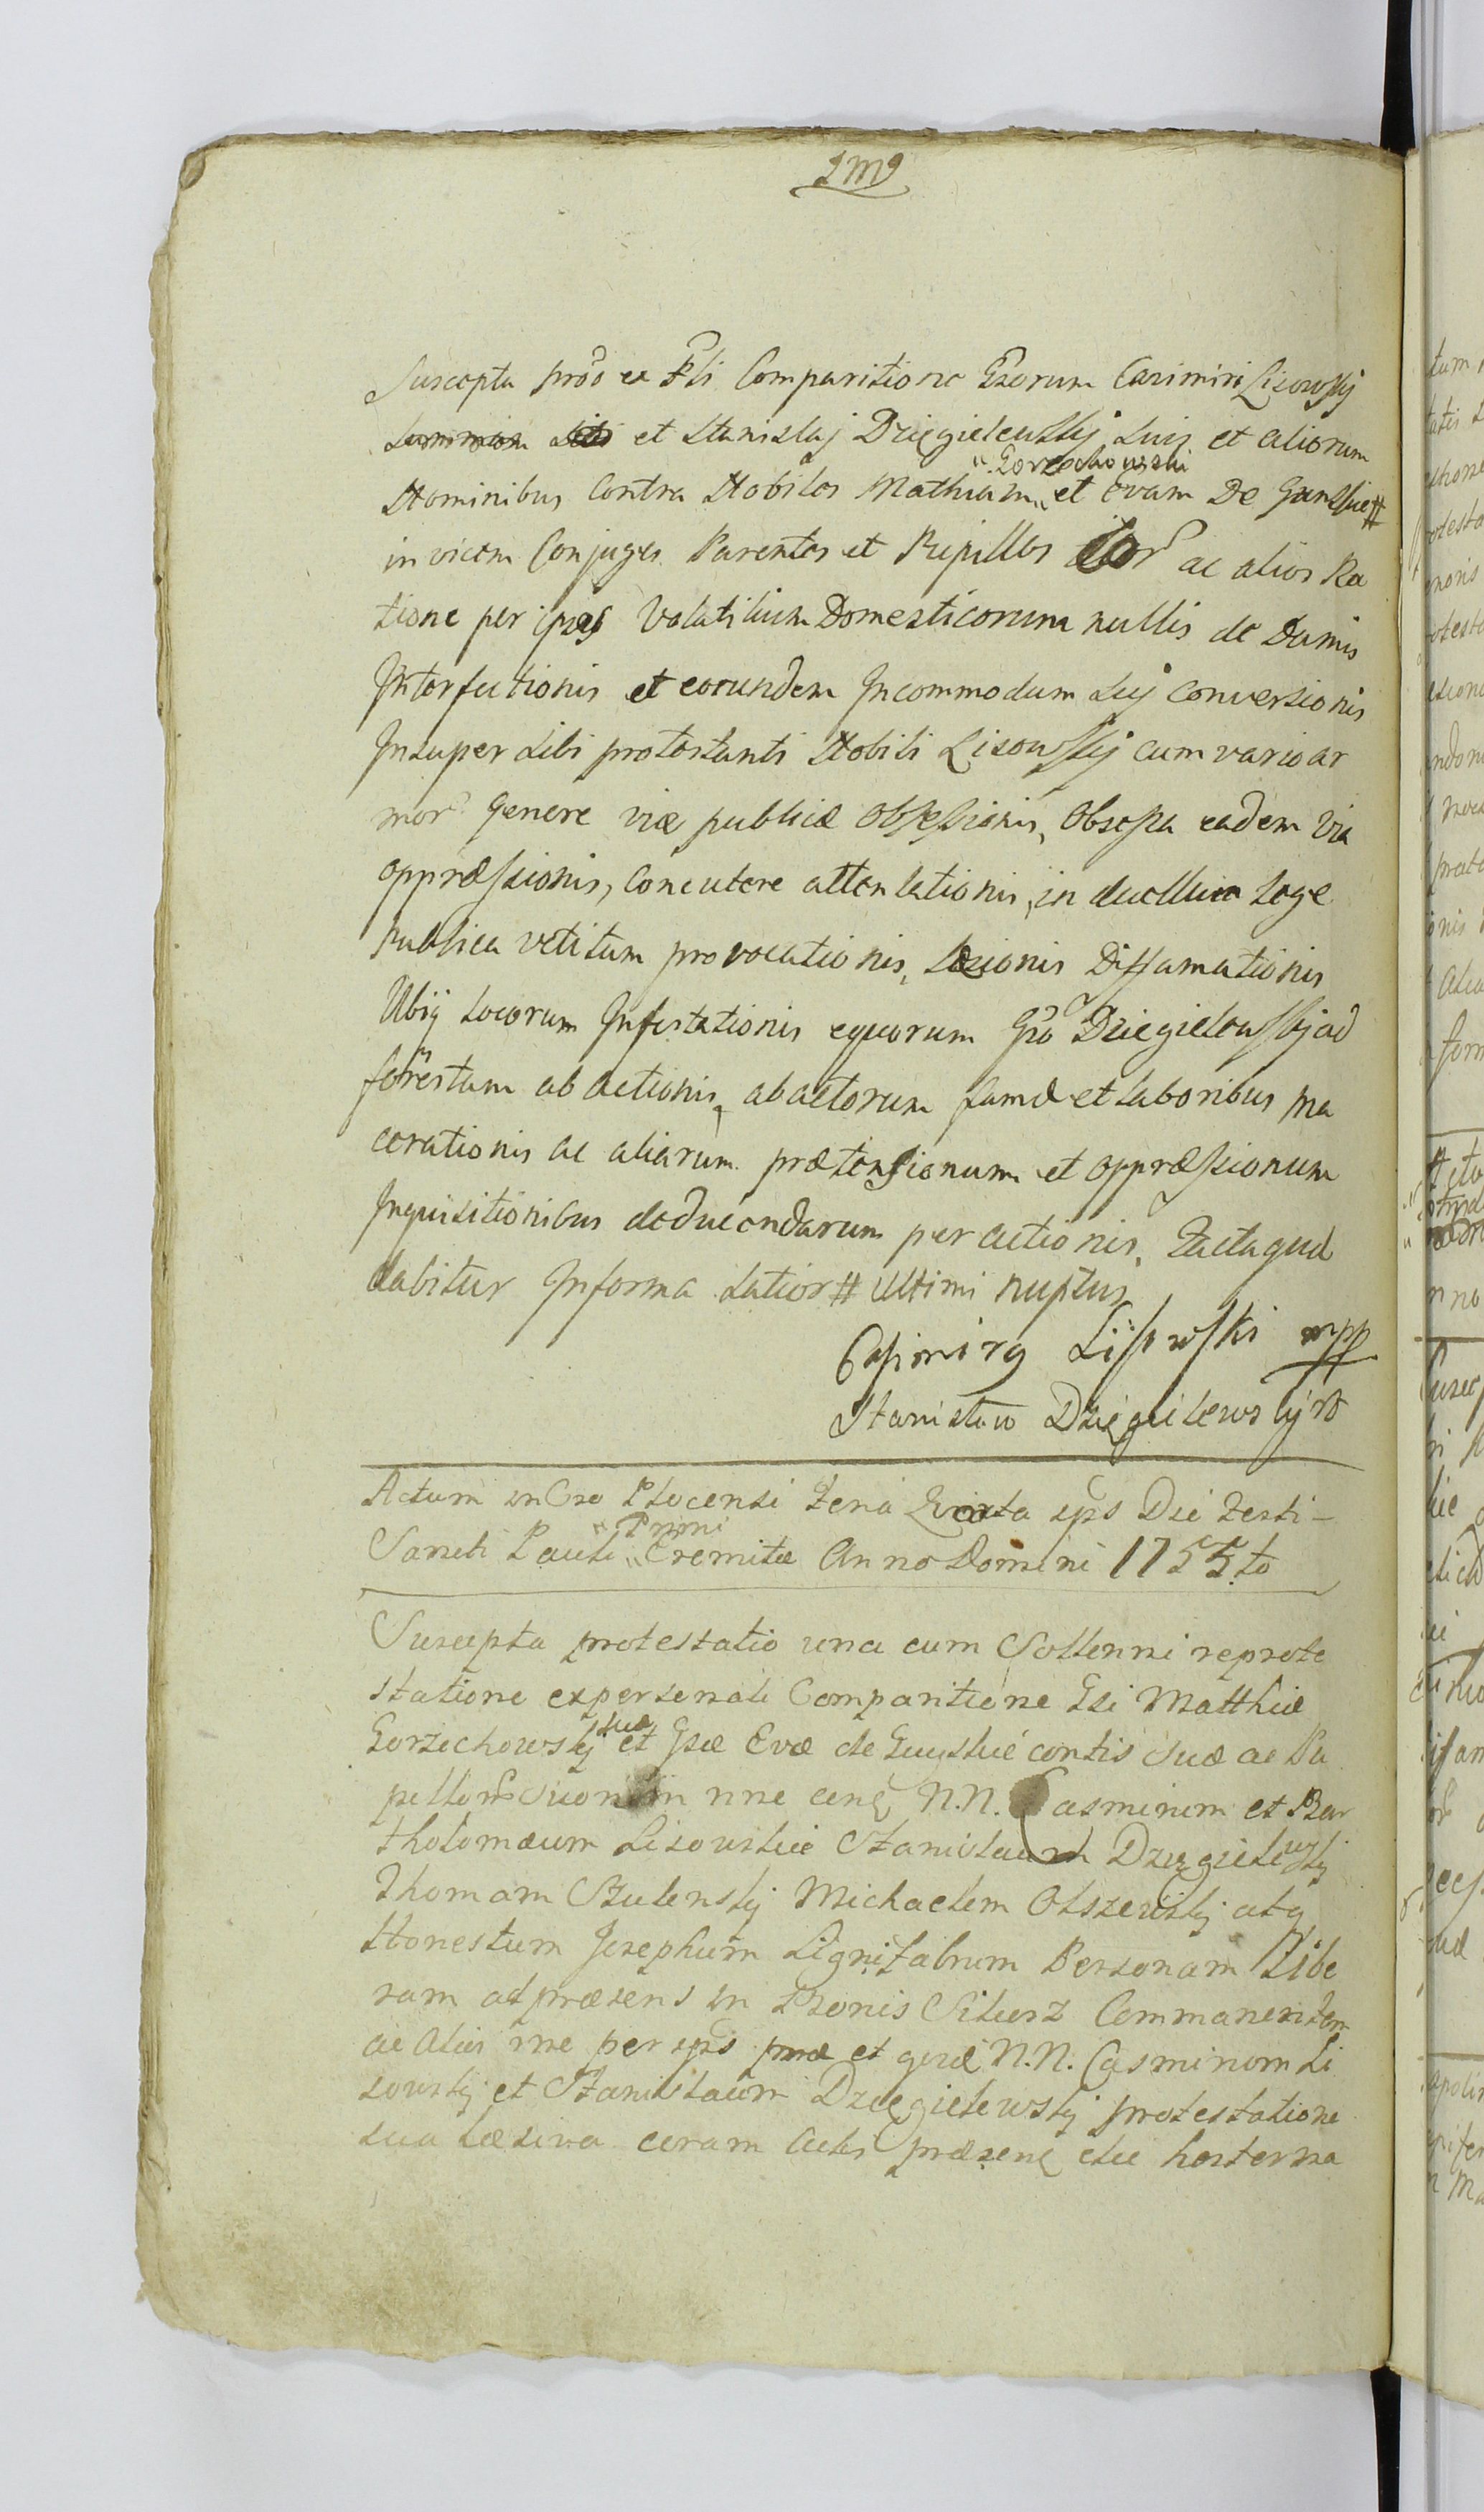 Suscepta pro͠o ex Pl͠i Comparitione G͠zorum Casimiri Lisowskij
et Stanislaj Dzięgielewskij Suis et aliorum
Nominibus Contra Nobiles Mathiam „ Gorzechowski „ et Evam De Gunskie #
invicem Conjuges Parentes et Pupillos ac alios Ra
tione per ipsos Volatilium Domesticorum nullis de Damis
Interfectionis et eorundem Incommodum Suj Conversionis
Insuper Sibi protestanti Nobili Lisowskij cum vario ar
mor͠ genere viæ publicæ obsessionis, Obsessa eadem via
oppræssionis, Concutere attentationis, in duellum Lege
Publica vetitum provocationis, Læsionis Diffamationis
Ubiq Locorum Infestationis equorum G͠zo Dziegielewskj ad
forestum abactionis, abactorum fame et laboribus ma
cerationis ac aliarum prætensionum et oppræssionum
Inquisitionibus deducendarum peractionis, Factaqud
dabitur Informa Latior # Ultimi nuptus
Casimirg Liisowski mpp
Stanisław Dzięgielewskij
Actum in Cro Plocensi Feria ips͠o Die Festi-
Sancti Pauli „ Primi „ Eremitæ Anno Domini 1755to
Suscepta protestatio una cum Sollenni reprote
statione ex personali Comparitione G͠si Matthiæ
Gorzechowskij suo et G͠sæ Evæ de Guyskie contis Suæ ac Pu
pillor͠ suorum nne cen͠g N.N. Casmirum et Bar
tholomæum Lisouskie Stanislaum Dzięgielewskij
Thomam Szulenskij Michaelem Olszewskij atq
Honestum Josephum Lignifabrum Personam Libe
ram ad præsens in Bonis Silurz Commanentem
ac Alios rne per ips͠s et N.N. Casmirum Li
souskij et Stanislaum Dzięgielewskij protestatione
sua læsiva coram Actis præsen͠g die hesterna